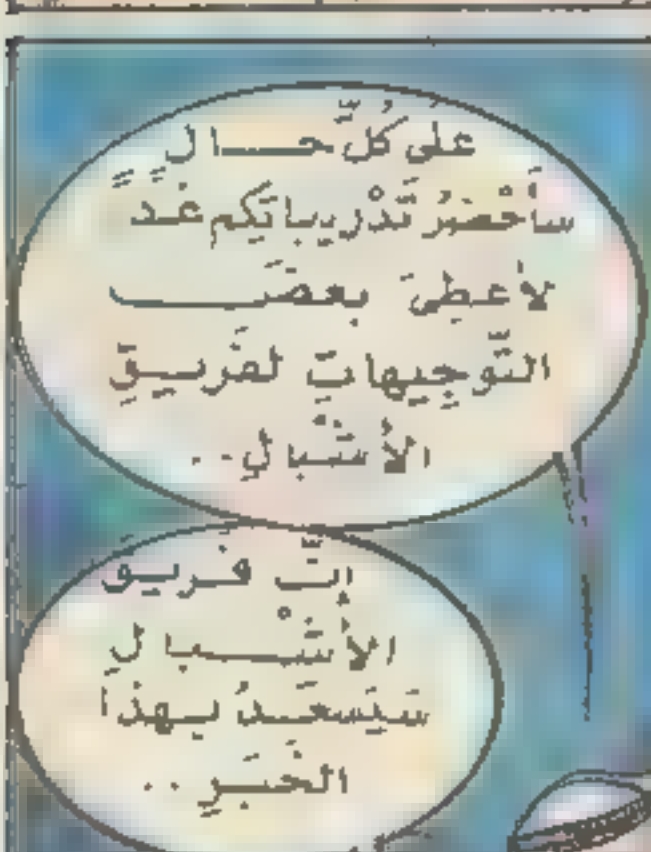 على كُلِّ حــالٍ
سأَحْضُرُ تَدْريباتِكم غـد
لأعطِىَ بعضَ
التَّوجِيهاتِ لفَريـقِ
الأشْبالِ..
إنَّ فَريـقَ
الأشْـبالِ
سَيَسعَـدُ بـهذا
الخَبَرِ..